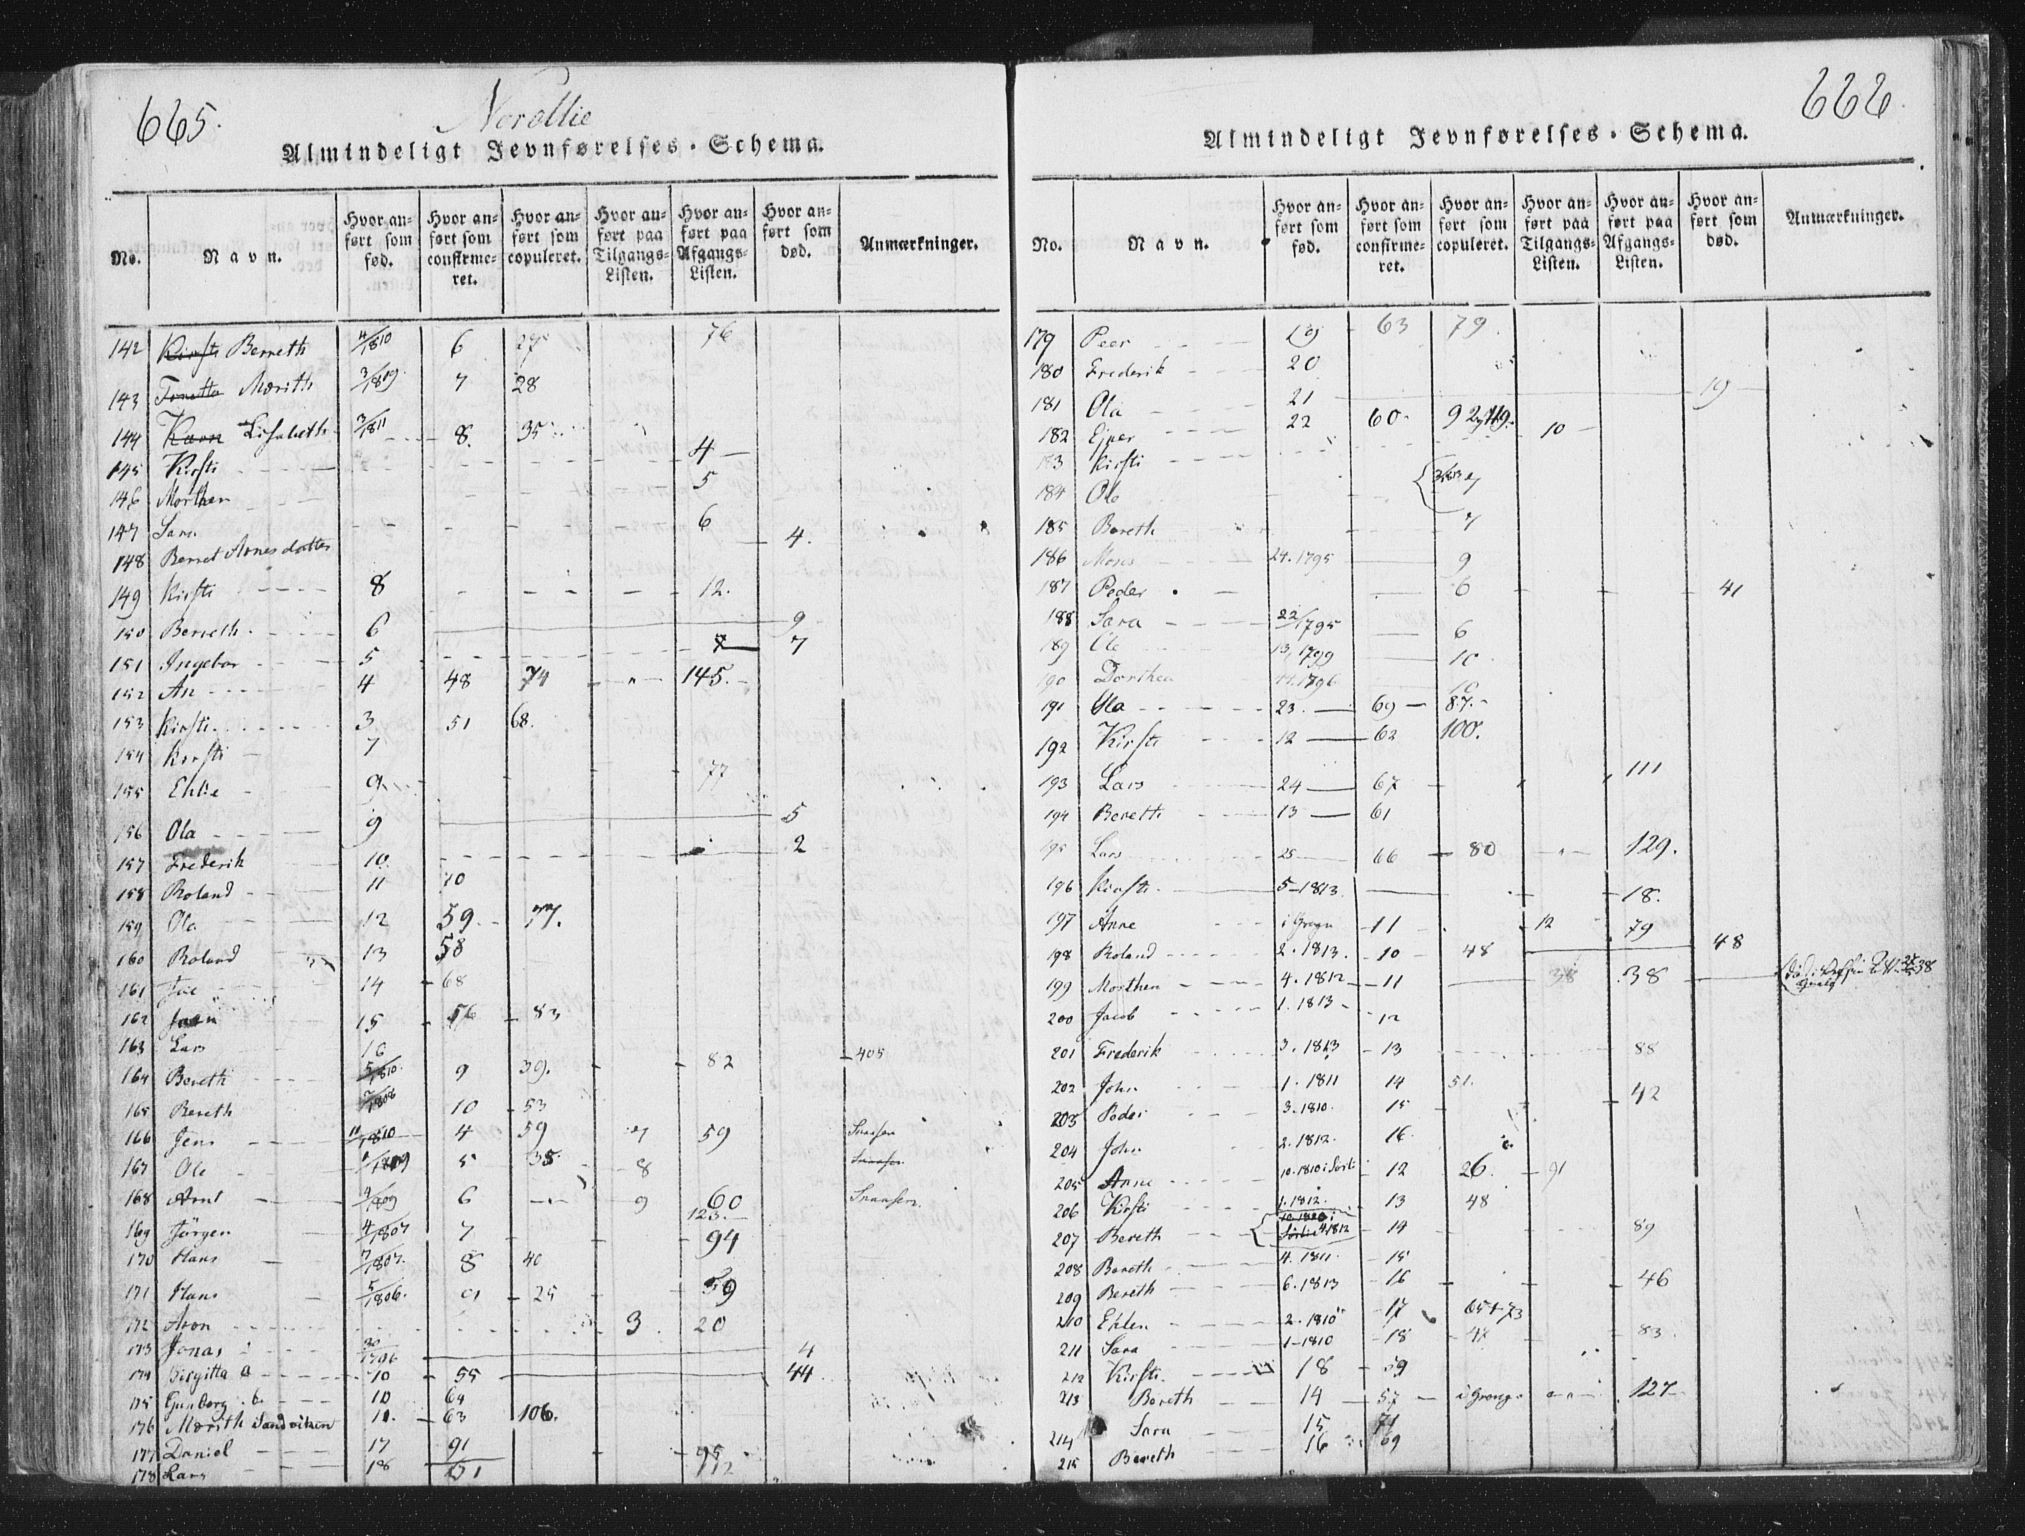 665.
Nordlie
Almindeligt Jevnførelses-Schema.
No. Navn. Hvor anført som fød. Hvor anført som confirmeret. Hvor anført som copuleret. Hvor anført paa Tilgangs-Listen. Hvor anført paa Afgangs-Listen. Hvor anført som død. Anmærkninger.
142 Kirsti Berreth 4/1810 6 27 76
143 Tonetta Merith 3/1819 7 28
144 Karn Lisabeth 3/1811 8. 35
145 Kirsti 4
146 Morthen 5
147 Sara 6
148 Berret Arnesdatter 4.
149 Kirsti 8 12.
150 Berreth 6 9
151 Ingebor 5 8 7
152 An 4 48 74 145.
153 Kirsti 3 51 68.
154 Kirsti 7
155 Ehlie 9 77
156 Ola 9 5
157 Frederik 10. 2
158 Roland 11 10
159 Ole 12 59 77.
160 Roland 13 58
161 14 68
162 15 56 83
163 Lars 16 405
164 Bereth 5/1810. 9 39. 82
165 Bereth 7/1808 10 53
166 Jens 11/1810 4 59 7 59 Snaasen
167 Ole 1/1809 5 35 8 Snaasen
168 Arnt 4/1809 6 9 60 Snaasen
169 Jørgen 4/1807 7 123. 94
170 Hans 7/1807. 8 40
171 Hans 5/1806. 9 25 59
172 Aron 3 20
173 Jonas 30/1796 4
174 Birgitta 10 55 44
175 Gunborg 10 64
176 Merith Sandviken 11. 63 106.
177 Daniel 17 91 95
178 Lars 18 112
666.
Almindeligt Jevnførelses-Schema.
No. Navn. Hvor anført som fød. Hvor anført som confirmeret. Hvor anført som copuleret. Hvor anført paa Tilgangs-Listen. Hvor anført paa Afgangs-Listen. Hvor anført som død. Anmærkninger.
179 Peer 19 63 79.
180 Frederik 20
181 Ola 21 19
182 Ejner 22 60. 92, 119. 10
183 Kirsti
184 Ole 7
185 Bereth 7
186 Mons 24. 1795 9
187 Peder 6 41
188 Sara 22/1795 6
189 Ole 13, 1799 10
190 Dorthea 11. 1796 10
191 Ola 23. 69 87.
192 Kirsti 12 62 100.
193 Lars 24 67 111
194 Bereth 13 61
195 Lars 25 66 80 129.
196 Kirsti 5-1813 18.
197 Anne i Grogn 11 12 79
198 Roland 2. 1813. 10 48 48
199 Morthen 4. 1812 11 38 38
200 Jacob 1. 1813 12
201 Frederik 3. 1813 13 88
202 John 1. 1811 14 51.
203 Peder 3. 1810. 15 42
204 John 2. 1812. 16.
205 Anne 10. 1810 i Sørli 12 26. 91
206 Kirsti 1. 1812. 13 48
207 Bereth Sørlie 4 1812 14 89
208 Bereth 4. 1811 15
209 Bereth 6. 1813 16 46
210 Ehlen 2. 1810 17 65+73
211 Sara 1-1810 18 83.
212 Kirsti 18 59
213 Bereth 14 57 i Grong 127
214 Sara 15 71
215 Bereth 16 69